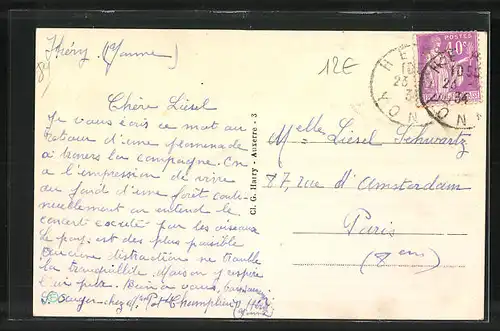 Héry (Yonne)
12E
Chère Liesel
Je vous écris ce mot au
retour d'une promenade
à travers la campagne. On
a l'impression de vivre
au fond d'une forêt conti-
nuellement on entend le
concert exécuté par les oiseaux
Le pays est des plus paisible
aucune distraction ne trouble
la tranquillité
l'air pur. Bien à vous,
chez Mr
Cl. G. Hairy - Auxerre - 3
POSTES
40c
Melle Liesel Schwartz
87, rue d'Amsterdam
Paris
(8 ème)